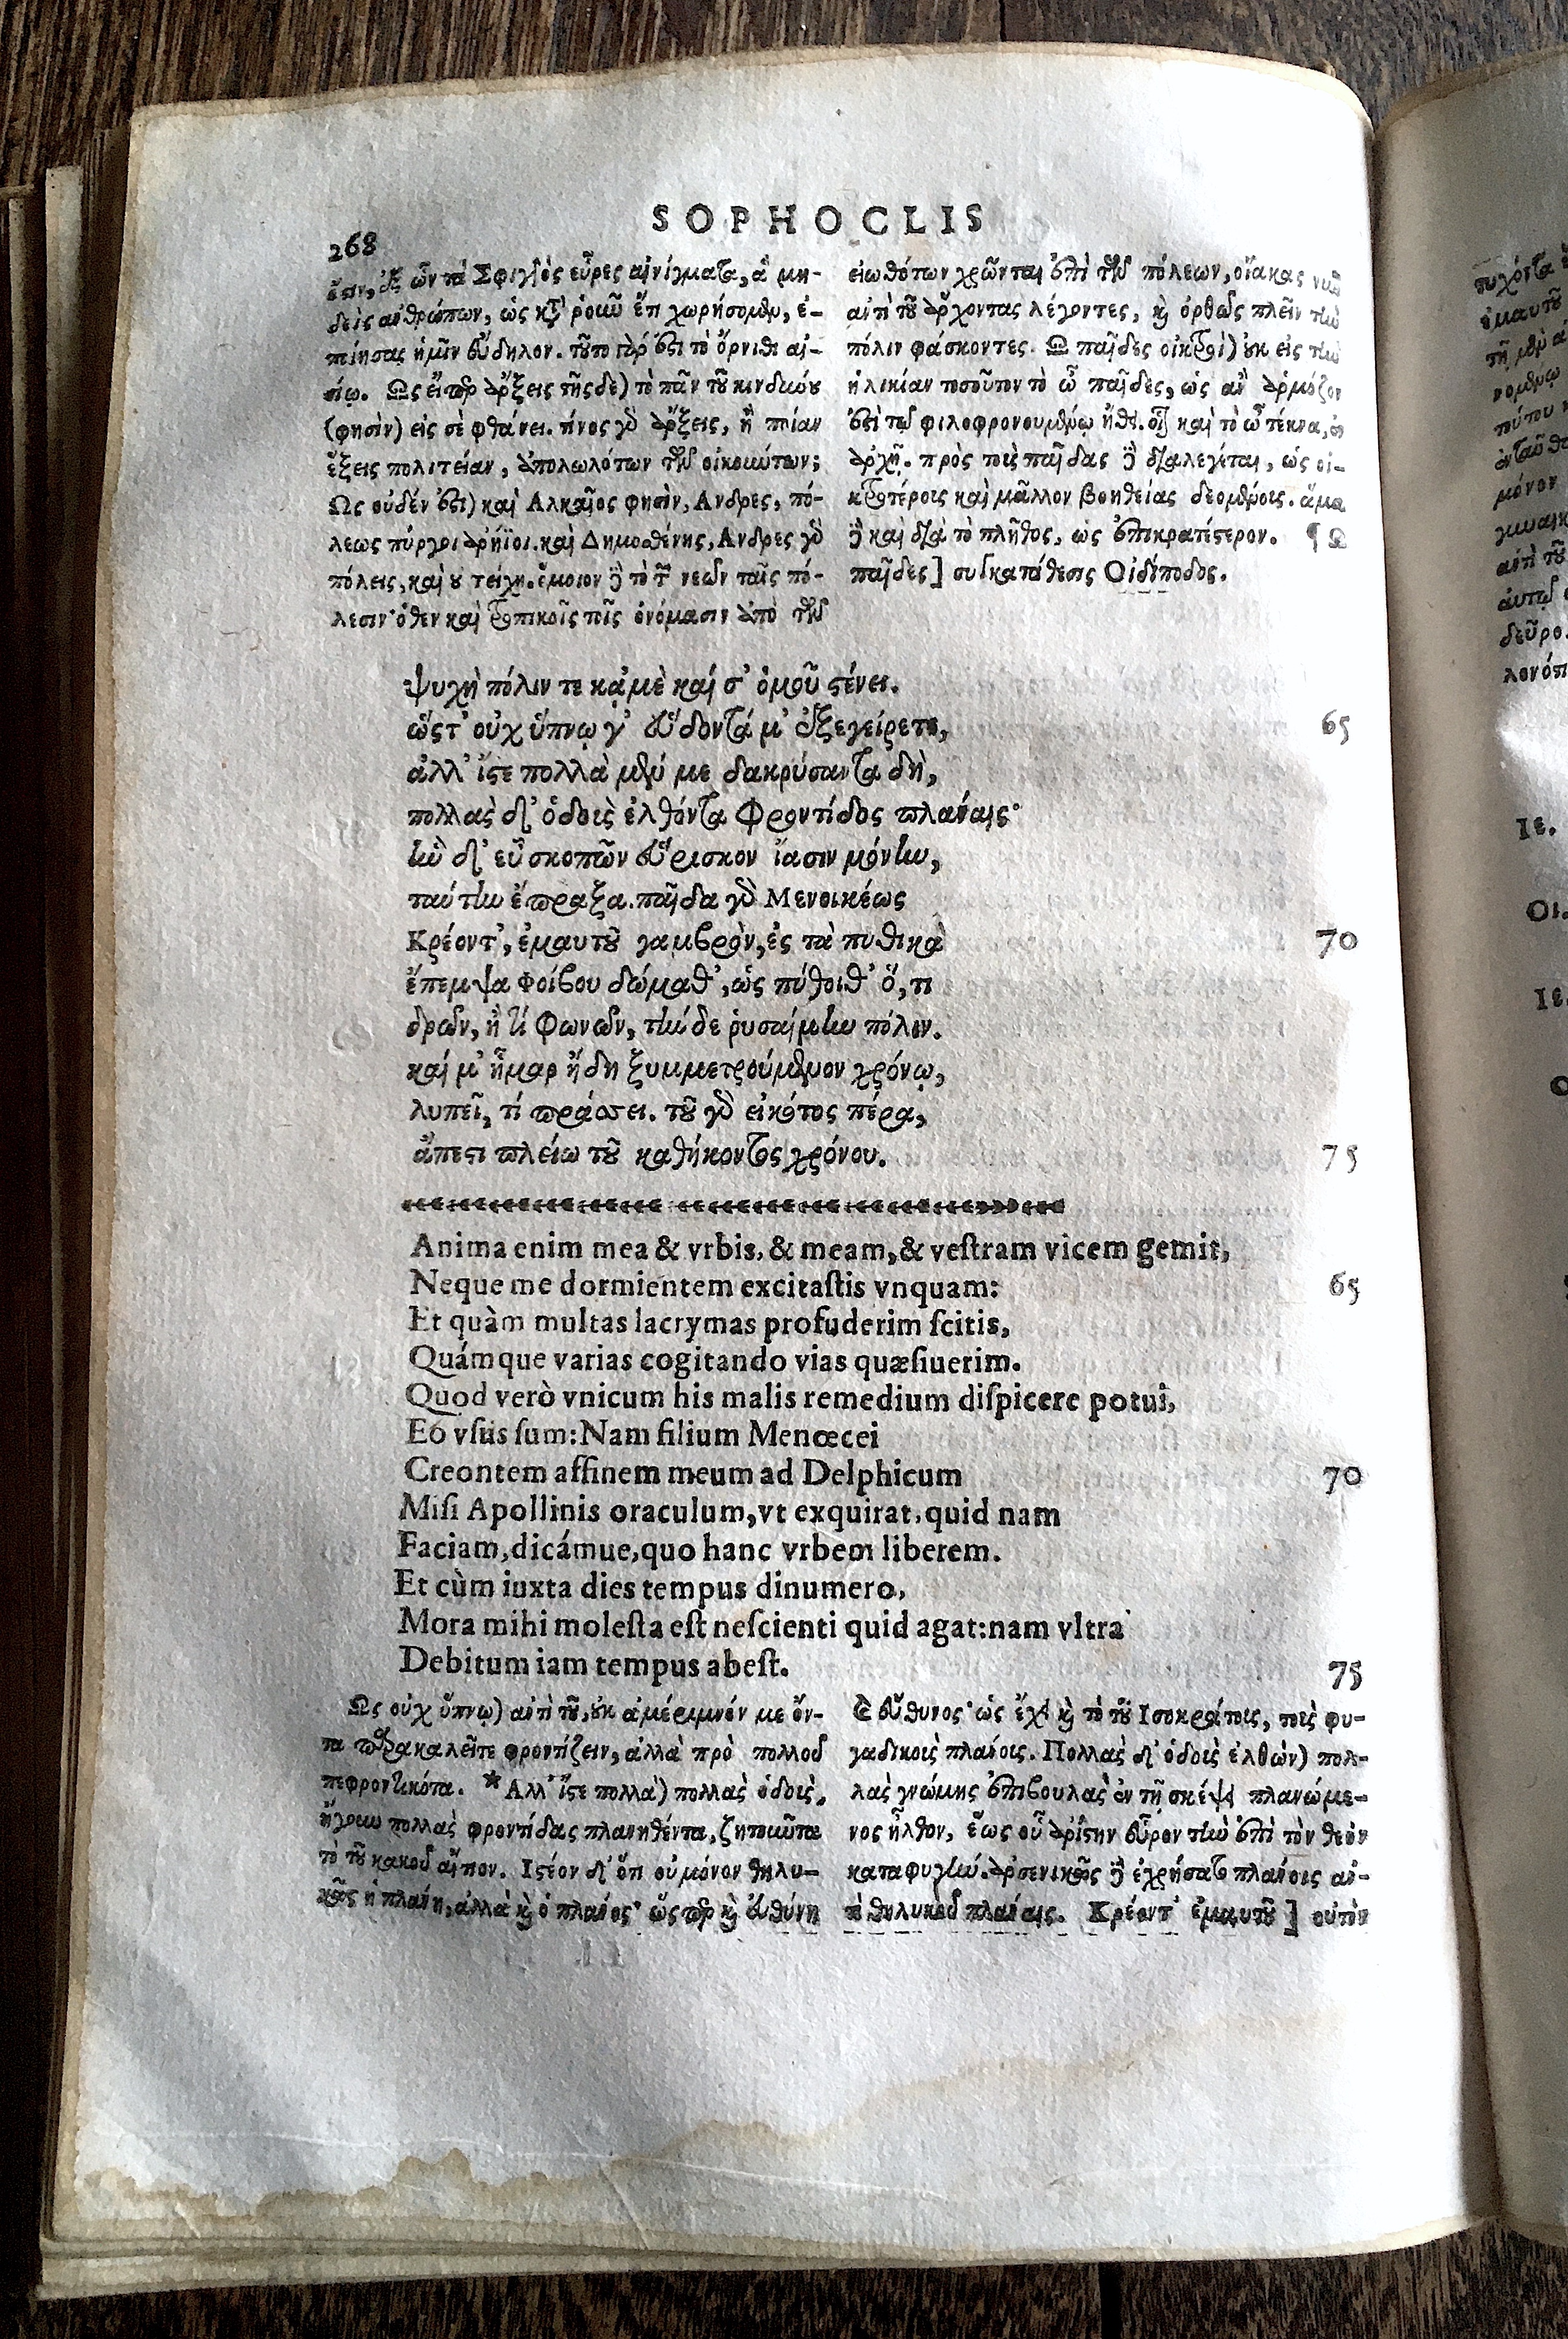 SOPHOCLIS
268
ὅσιν, ἐξ ὧν τὰ Σφιγγὸς εὗρες αἰνίγματα, ἃ μη-
δεὶς ἀνθρώπων, ὡς κατὰ ῥοῦν ἔτι χωρήσομεν, ἐ-
ποίησας ἡμῖν εὔδηλον. τοῦτο γάρ ἐστι τὸ ὄρνιθι αἰ-
σίῳ. Ως εἴπερ ἄρξεις τῆςδε) τὸ πᾶν τοῦ κινδύνου
(φησὶν) εἰς σὲ φθάνει. τίνος γὰρ ἄρξεις, ἢ ποίαν
ἕξεις πολιτείαν, ἀπολωλότων τῶν οἰκούντων;
Ως οὐδέν ἐστι) καὶ Αλκαῖος φησὶν, Ανδρες, πό-
λεως πύργοι ἀρήϊοι. καὶ Δημοσθένης, Ανδρες γὰρ
πόλεις, καὶ οὐ τείχη. ὅμοιον δὲ τὸ τῶν νεῶν ταῖς πό-
λεσιν· ὅθεν καὶ τροπικοῖς τοῖς ὀνόμασιν ἀπὸ τῶν
εἰωθότων χρῶνται ἐπὶ τῶν πόλεων, οἴακας νεῶν
ἀντὶ τοῦ ἄρχοντας λέγοντες, καὶ ὀρθῶς πλεῖν τὴν
πόλιν φάσκοντες. Ω παῖδες οἰκτροὶ) οὐκ εἰς τὴν
ἡλικίαν τοσοῦτον τὸ ὦ παῖδες, ὡς ἂν ἁρμόζον
ἐστὶ τῷ φιλοφρονουμένῳ ἤθει. οἷον καὶ τὸ ὦ τέκνα, ἐν
ἀρχῇ. πρὸς τοὺς παῖδας δὲ διαλέγεται, ὡς οἰ-
κτροτέροις καὶ μᾶλλον βοηθείας δεομένοις. ἅμα
δὲ καὶ διὰ τὸ πλῆθος, ὡς ἐπικρατέστερον. ¶ Ω
παῖδες] συγκατάθεσις Οἰδίποδος.
ψυχὴ πόλιν τε κᾀμὲ καί σ' ὁμοῦ στένει.
ὥστ' οὐχ ὕπνῳ γ' εὕδοντά μ' ἐξεγείρετε, 65
ἀλλ' ἴστε πολλὰ μέν με δακρύσαντα δὴ,
πολλὰς δ' ὁδοὺς ἐλθόντα φροντίδος πλάναις·
ἣν δ' εὖ σκοπῶν εὕρισκον ἴασιν μόνην,
ταύτην ἔπραξα. παῖδα γὰρ Μενοικέως
Κρέοντ', ἐμαυτοῦ γαμβρὸν, ἐς τὰ πυθικὰ 70
ἔπεμψα Φοίβου δώμαθ', ὡς πύθοιθ' ὅ, τι
δρῶν, ἢ τί φωνῶν, τήνδε ῥυσαίμην πόλιν.
καί μ' ἦμαρ ἤδη ξυμμετρούμενον χρόνῳ,
λυπεῖ, τί πράσσει. τοῦ γὰρ εἰκότος πέρα,
ἄπεστι πλείω τοῦ καθήκοντος χρόνου. 75
Anima enim mea & vrbis, & meam, & veſtram vicem gemit,
Neque me dormientem excitaſtis vnquam: 65
Et quàm multas lacrymas profuderim ſcitis,
Quámque varias cogitando vias quæſiuerim.
Quod verò vnicum his malis remedium diſpicere potui,
Eo vſus ſum: Nam filium Menœcei
Creontem affinem meum ad Delphicum 70
Miſi Apollinis oraculum, vt exquirat, quid nam
Faciam, dicámue, quo hanc vrbem liberem.
Et cùm iuxta dies tempus dinumero,
Mora mihi moleſta eſt neſcienti quid agat: nam vltra
Debitum iam tempus abeſt. 75
Ως οὐχ ὕπνῳ) ἀντὶ τοῦ, οὐκ ἀμέριμνόν με ὄν-
τα παρακαλεῖτε φροντίζειν, ἀλλὰ πρὸ πολλοῦ
πεφροντικότα. * Αλλ' ἴστε πολλὰ) πολλὰς ὁδοὺς,
ἤγουν πολλὰς φροντίδας πλανηθέντα, ζητοῦντα
τὸ τοῦ κακοῦ αἴτιον. Ιστέον δ' ὅτι οὐ μόνον θηλυ-
κῶς ἡ πλάνη, ἀλλὰ καὶ ὁ πλάνος· ὥσπερ καὶ εὐθύνη
καὶ εὔθυνος· ὡς ἔχει καὶ τὸ τοῦ Ισοκράτους, τοὺς φυ-
γαδικοὺς πλάνους. Πολλὰς δ' ὁδοὺς ἐλθὼν) πολ-
λὰς γνώμης ἐπιβουλὰς ἐν τῇ σκέψει πλανώμε-
νος ἦλθον, ἕως οὗ ἀρίστην εὗρον τὴν ἐπὶ τὸν θεὸν
καταφυγήν. ἀρσενικῶς δὲ ἐχρήσατο πλάνοις ἀν-
τὶ θηλυκοῦ πλάναις. Κρέοντ' ἐμαυτοῦ] οὐτὸν